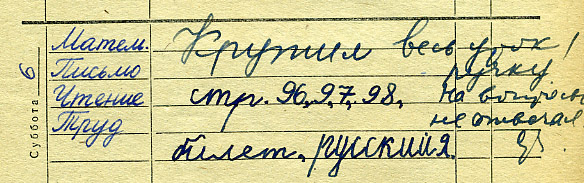 Суббота 6
Матем. Крутил весь урок
Письмо ручку
Чтение стр. 96, 97, 98. На вопросы
Труд не отвечал
билет. русский я.